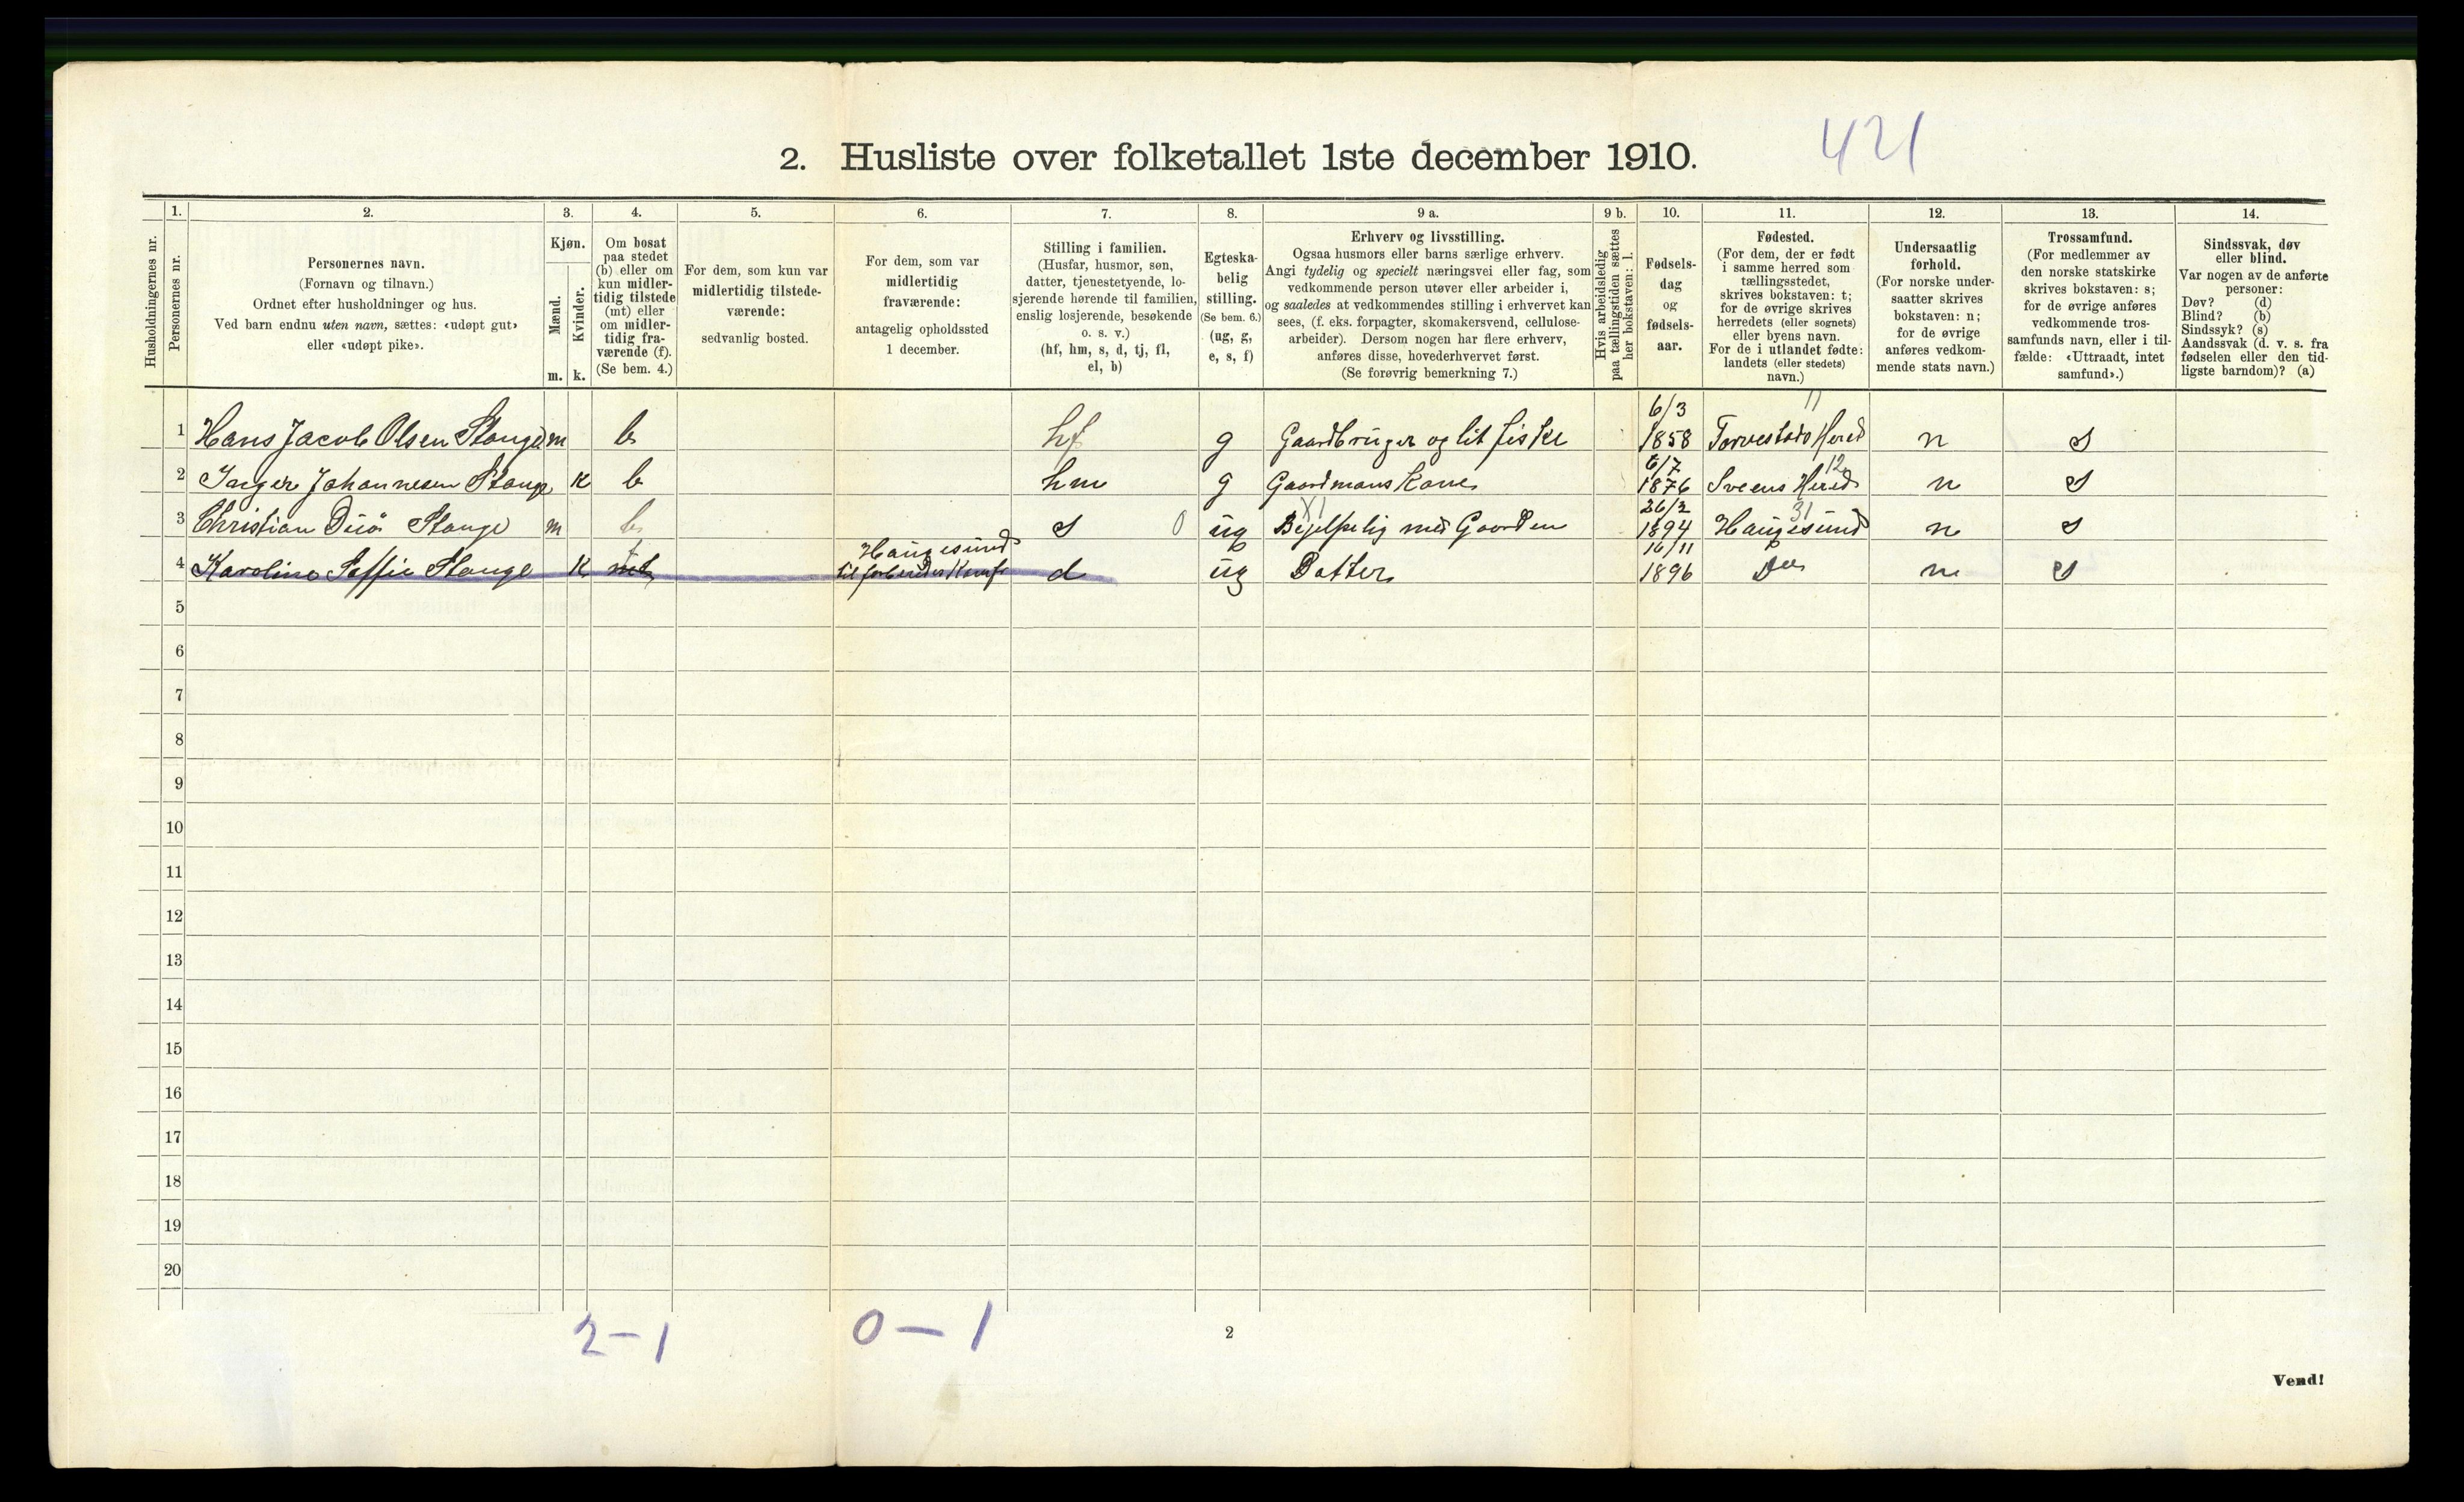 421
2. Husliste over folketallet 1ste december 1910.
Husholdningernes nr.
1.
Personernes nr.
2.
Personernes navn.
(Fornavn og tilnavn.)
Ordnet efter husholdninger og hus.
Ved barn endnu uten navn, sættes: «udøpt gut»
eller «udøpt pike».
3.
Kjøn.
Mænd.
Kvinder.
m. k.
4.
Om bosat
paa stedet
(b) eller om
kun midler-
tidig tilstede
(mt) eller
om midler-
tidig fra-
værende (f).
(Se bem. 4.)
5.
For dem, som kun var
midlertidig tilstede-
værende:
sedvanlig bosted.
6.
For dem, som var
midlertidig
fraværende:
antagelig opholdssted
1 december.
7.
Stilling i familien.
(Husfar, husmor, søn,
datter, tjenestetyende, lo-
sjerende hørende til familien,
enslig losjerende, besøkende
o. s. v.)
(hf, hm, s, d, tj, fl,
el, b)
8.
Egteska-
belig
stilling.
(Se bem. 6.)
(ug, g,
e, s, f)
9 a.
Erhverv og livsstilling.
Ogsaa husmors eller barns særlige erhverv.
Angi tydelig og specielt næringsvei eller fag, som
vedkommende person utøver eller arbeider i,
og saaledes at vedkommendes stilling i erhvervet kan
sees, (f. eks. forpagter, skomakersvend, cellulose-
arbeider). Dersom nogen har flere erhverv,
anføres disse, hovederhvervet først.
(Se forøvrig bemerkning 7.)
9 b.
Hvis arbeidsledig
paa tællingstiden sættes
her bokstaven: l.
10.
Fødsels-
dag
og
fødsels-
aar.
11.
Fødested.
(For dem, der er født
i samme herred som
tællingsstedet,
skrives bokstaven: t;
for de øvrige skrives
herredets (eller sognets)
eller byens navn.
For de i utlandet fødte:
landets (eller stedets)
navn.)
12.
Undersaatlig
forhold.
(For norske under-
saatter skrives
bokstaven: n;
for de øvrige
anføres vedkom-
mende stats navn.)
13.
Trossamfund.
(For medlemmer av
den norske statskirke
skrives bokstaven: s;
for de øvrige anføres
vedkommende tros-
samfunds navn, eller i til-
fælde: «Uttraadt, intet
samfund».)
14.
Sindssvak, døv
eller blind.
Var nogen av de anførte
personer:
Døv? (d)
Blind? (b)
Sindssyk? (s)
Aandssvak (d. v. s. fra
fødselen eller den tid-
ligste barndom)? (a)
1 Hans Jacob Olsen Stange m b hf g Gaardbruger og lit fiske 6/3 1858 Torvestads Hered 11 n s
2 Inger Johannesen Stange k b hm g Gaardmans Kone 6/7 1876 Sveens Hered 12 n s
3 Christian Stange m b s 0 ug XI Bejelpelig med Gaarden 26/2 1894 Haugesund 31 n s
4 Karoline Soffie Stange k mt f Haugesund d ug Datter 16/11 1896 Do n s
5
6
7
8
9
10
11
12
13
14
15
16
17
18
19
20
2 – 1
0 – 1
2
Vend!